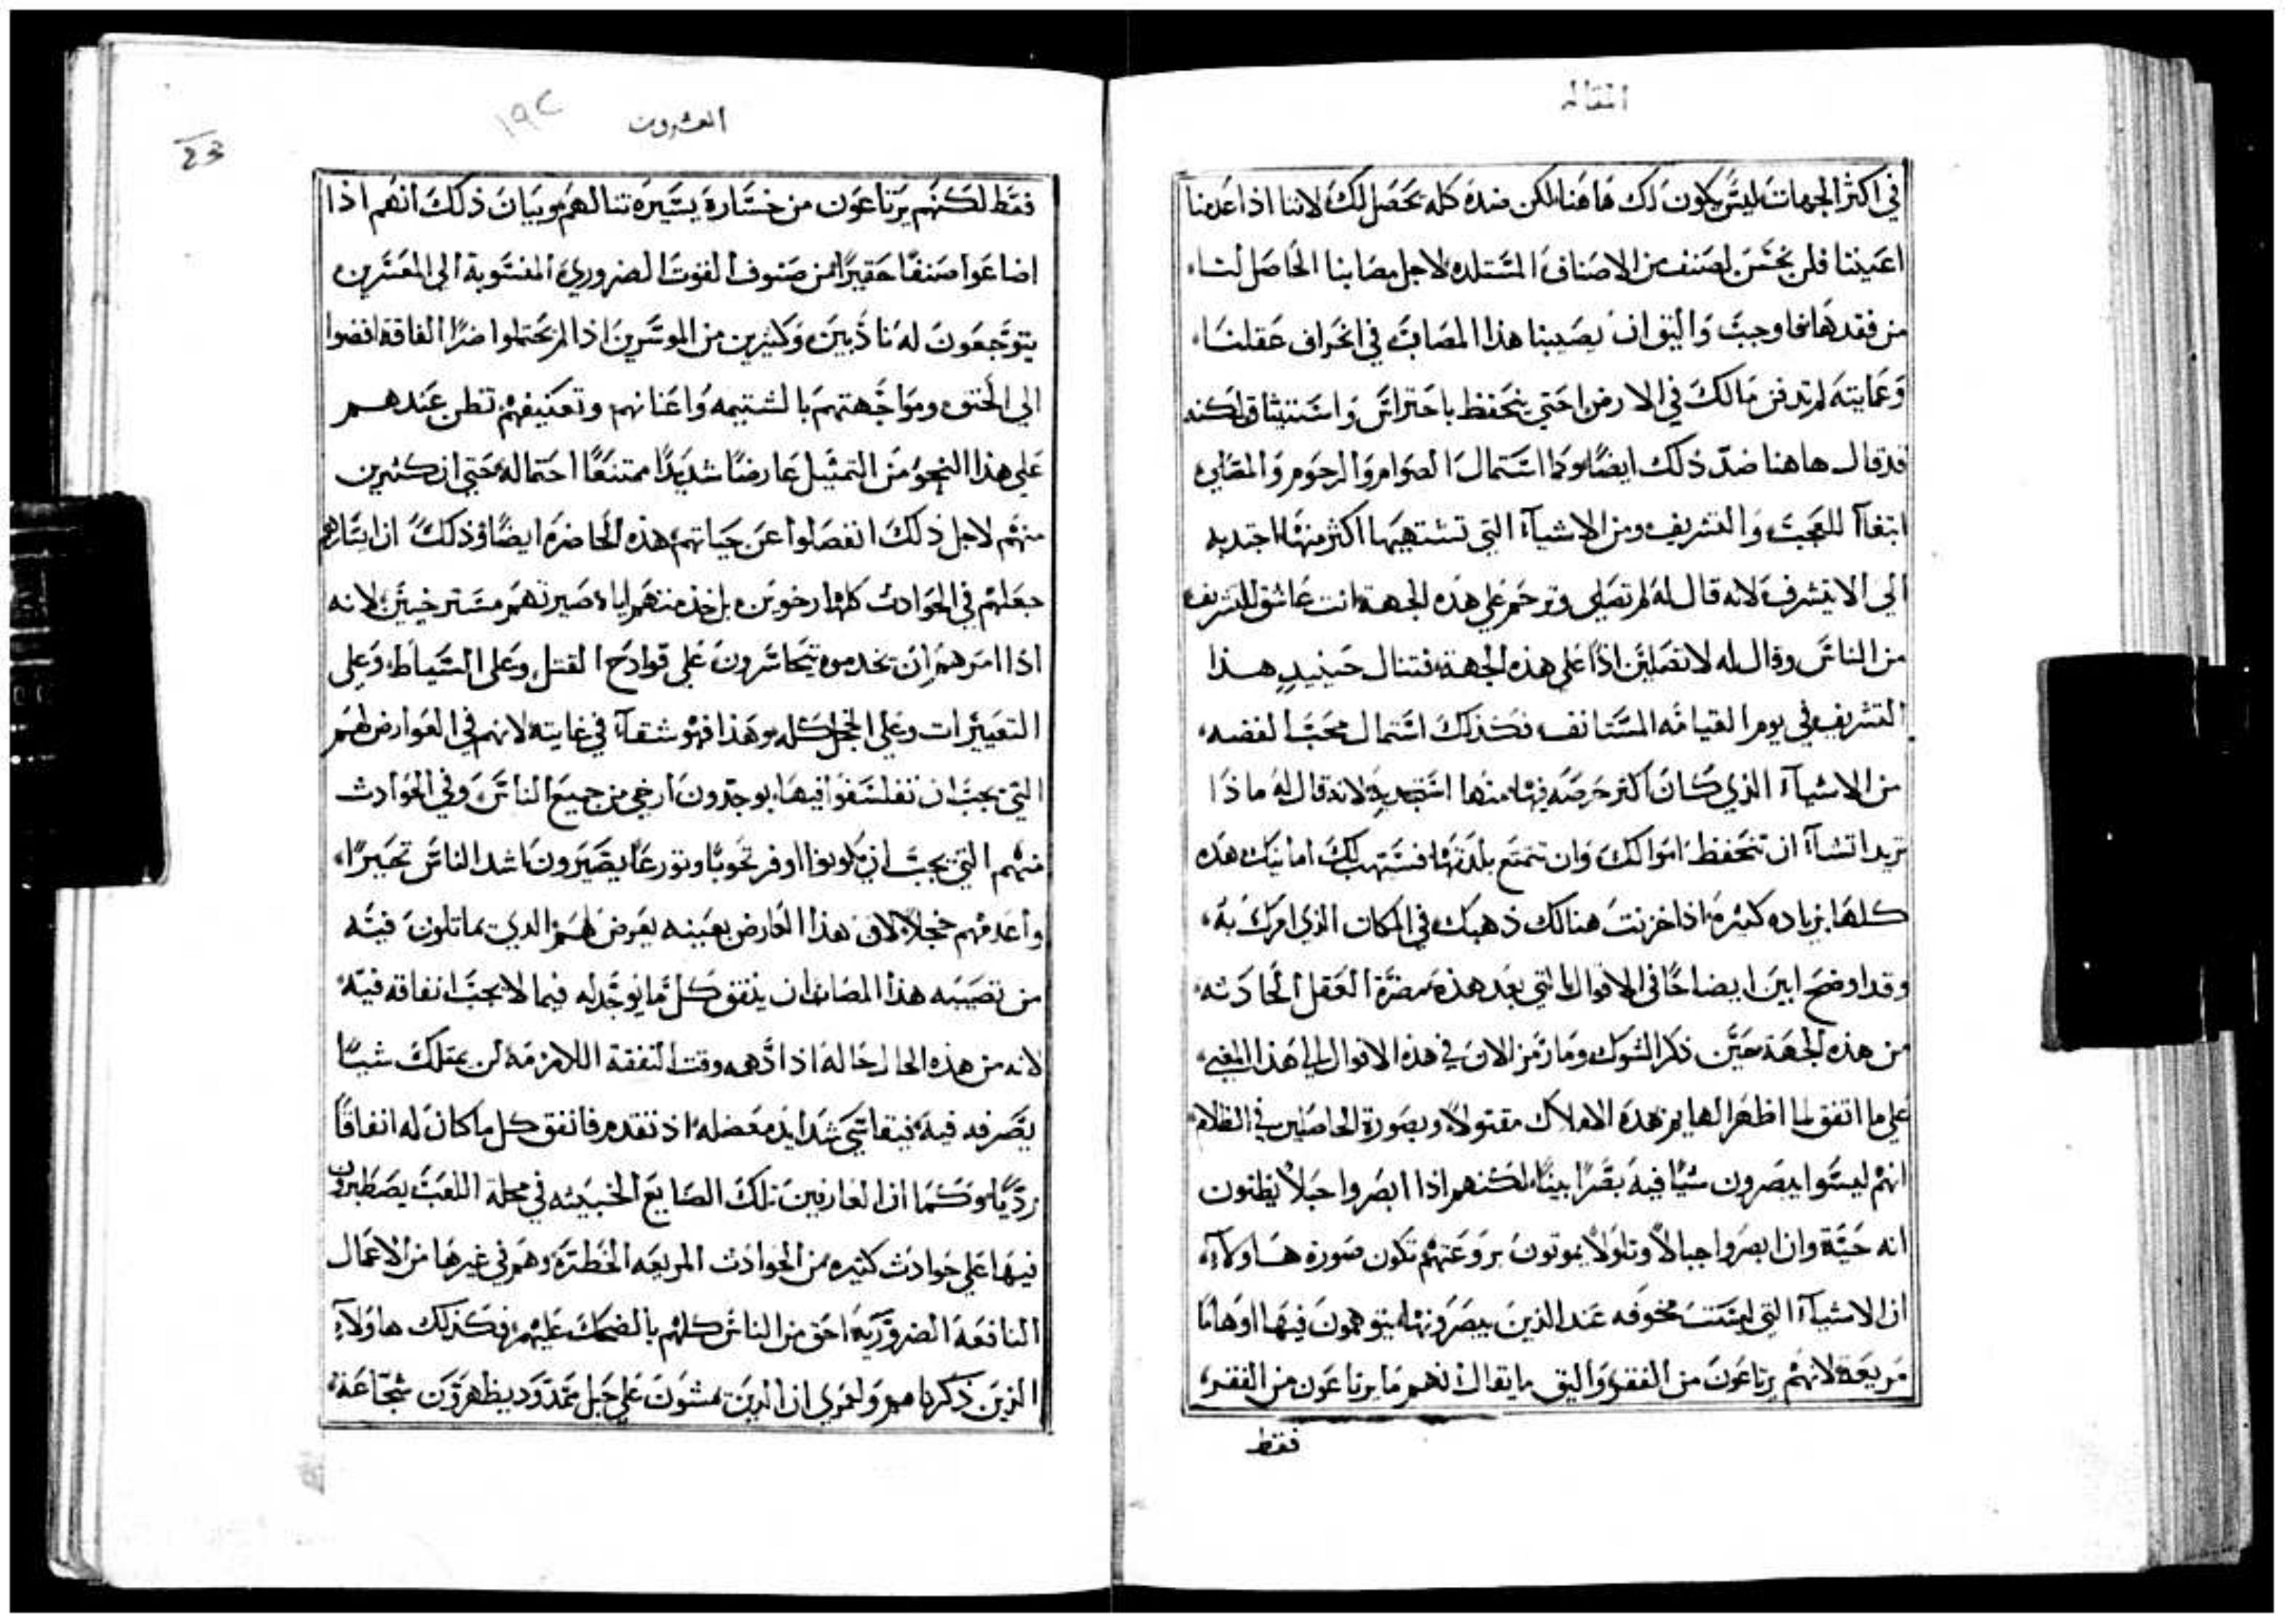 المقاله
في اكثر الجهات ليس يكون لك هاهنا لكن ضده كله يحصل لك لاننا اذا عدمنا
اعيننا فلن نحس لصنف من الاصناف المستلده لاجل مصابنا الحاصل لنا
من فقدها فاوجب واليق ان يصيبنا هذا المصاب في انحراف عقلنا
وعمايته لم تدفن مالك في الارض احتي يتحفظ باحتراس واستيثاق لكنه
قد قال هاهنا ضد ذلك ايضا وكما استمال الصوام والرحوم والمصلي
ابتغاآ للعجب والتشريف ومن الاشيآء التي تشتهيها اكثر منها اجتذبه
الي الا يتشرف لانه قال له لم تصلي وترحم علي هذه الجهة انت عاشق للتشريف
من الناس وقال له لا تصلين اذا علي هذه الجهة فتنال حينيذ هذا
التشريف في يوم القيامه المستانف فكذلك استمال محب الفضه
من الاشيآء الذي كان اكثر حرصه فيها منها استجذبه لانه قال له ماذا
تريد اتشآء ان تتحفظ اموالك وان تتمتع بلذتها فستهب لك امانيك هذه
كلها بزياده كثيره اذا خزنت هنالك ذهبك في المكان الذي امرك به
وقد اوضح ابين ايضاحا في الاقوال التي بعد هذه مضرة العقل الحادثه
من هذه الجهة حين ذكر الشوك وما رمز الان في هذه الاقوال الي هذا المغني
علي ما اتفق لما اظهر الهايم بهذه الاملاك مقتولا وبصورة الحاصلين في الظلام
انهم ليسوا يبصرون شيا فيه بصرا بينا لكنهم اذا ابصروا حبلا يظنون
انه حية وان ابصروا جبالا وتلولا يموتون بروعتهم تكون صورة هاولآء
ان الاشيآء التي ليست مخوفه عند الذين يبصرونها يتوهمون فيها اوهاما
مريعة لانهم يرتاعون من الفقر واليق ما يقال انهم ما يرتاعون من الفقر
فقط
العشرون
١٩٢
فقط لكنهم يرتاعون من خسارة يسيرة تنالهم وبيان ذلك انهم اذا
اضاعوا صنفا حقيرا من صنوف القوت الضروري المنسوبة الي المعسرين
يتوجعون له ناذبين وكثيرين من الموسرين اذا لم يحتملوا ضرا الفاقة افضوا
الي الخنق ومواجهتهم بالشتيمه واعنانهم وتعنيفهم تظن عندهم
علي هذا النحو من التمثيل عارضا شديدا ممتنعا احتماله حتي ان كثيرين
منهم لاجل ذلك انفصلوا عن حياتهم هذه الحاضره ايضا وذلك ان ايسارهم
جعلهم في الحوادث كلها ارخوين بل خذمتهم اياه صيرتهم مسترخيين لانه
اذا امرهم ان يخدموه يتجاسرون علي قوادح القتل وعلي السياط وعلي
التعييرات وعلي الخجل كله وهذا فهو شقآء في غايته لانهم في العوارض لهم
التي يجب ان تفلسفوا فيها يوجدون ارخي من جميع الناس وفي الحوادث
منهم التي يجب ان يكونوا اوفر تحوبا وتورعا يصيرون اشد الناس تحيرا
واعدمهم خجلا لان هذا العارض بعينه يعرض لهم الذي يماثلون فيه
من تصيبه هذا المصاب ان ينفق كل ما يوجد له فيما لا يجب انفاقه فيه
لانه من هذه الحال حاله اذا دهمه وقت النفقة اللازمه لن يمتلك شيا
يصرفه فيه فيقاسي شدايد معضله اذ تقدم فانفق كل ما كان له انفاقا
رديا وكما ان العارفين تلك الصنايع الخبيثه في محلة اللعب يصطبرون
فيها علي حوادث كثيره من الحوادث المريعه الخطرة وهم في غيرها من الاعمال
النافعة الضرورية احق من الناس كلهم بالضحك عليهم فكذلك هاولآء
الذين ذكرناهم ولعمري ان الذين يمشون علي حبل ممدود يظهرون شجاعة